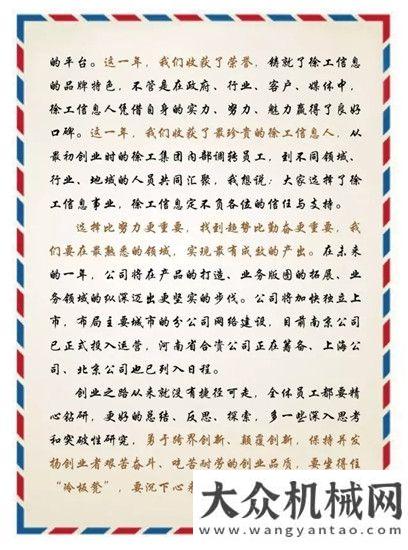 的平台。这一年，我们收获了荣誉，铸就了徐工信息
的品牌特色，不管是在政府、行业、客户、媒体中，
徐工信息人凭借自身的实力、努力、魅力赢得了良好
口碑。这一年，我们收获了最珍贵的徐工信息人，从
最初创业时的徐工集团内部调转员工，到不同领域、
行业、地域的人员共同汇聚，我想说：大家选择了徐
工信息事业，徐工信息定不负各位的信任与支持。
选择比努力更重要，找到趋势比勤奋更重要，我
们要在最熟悉的领域，实现最有成效的产出。在未来
的一年，公司将在产品的打造、业务版图的拓展、业
务领域的纵深迈出更坚实的步伐。公司将加快独立上
市，布局主要城市的分公司网络建设，目前南京公司
已正式投入运营，河南省合资公司正在筹备、上海公
司、北京公司也已列入日程。
创业之路从来就没有捷径可走，全体员工都要精
心钻研，更好的总结、反思、探索，多一些深入思考
和突破性研究，勇于跨界创新、颠覆创新，保持并发
扬创业者艰苦奋斗、吃苦耐劳的创业品质，要坐得住
“冷板凳”，要沉下心来
大众机械网
www.wangyantao.com